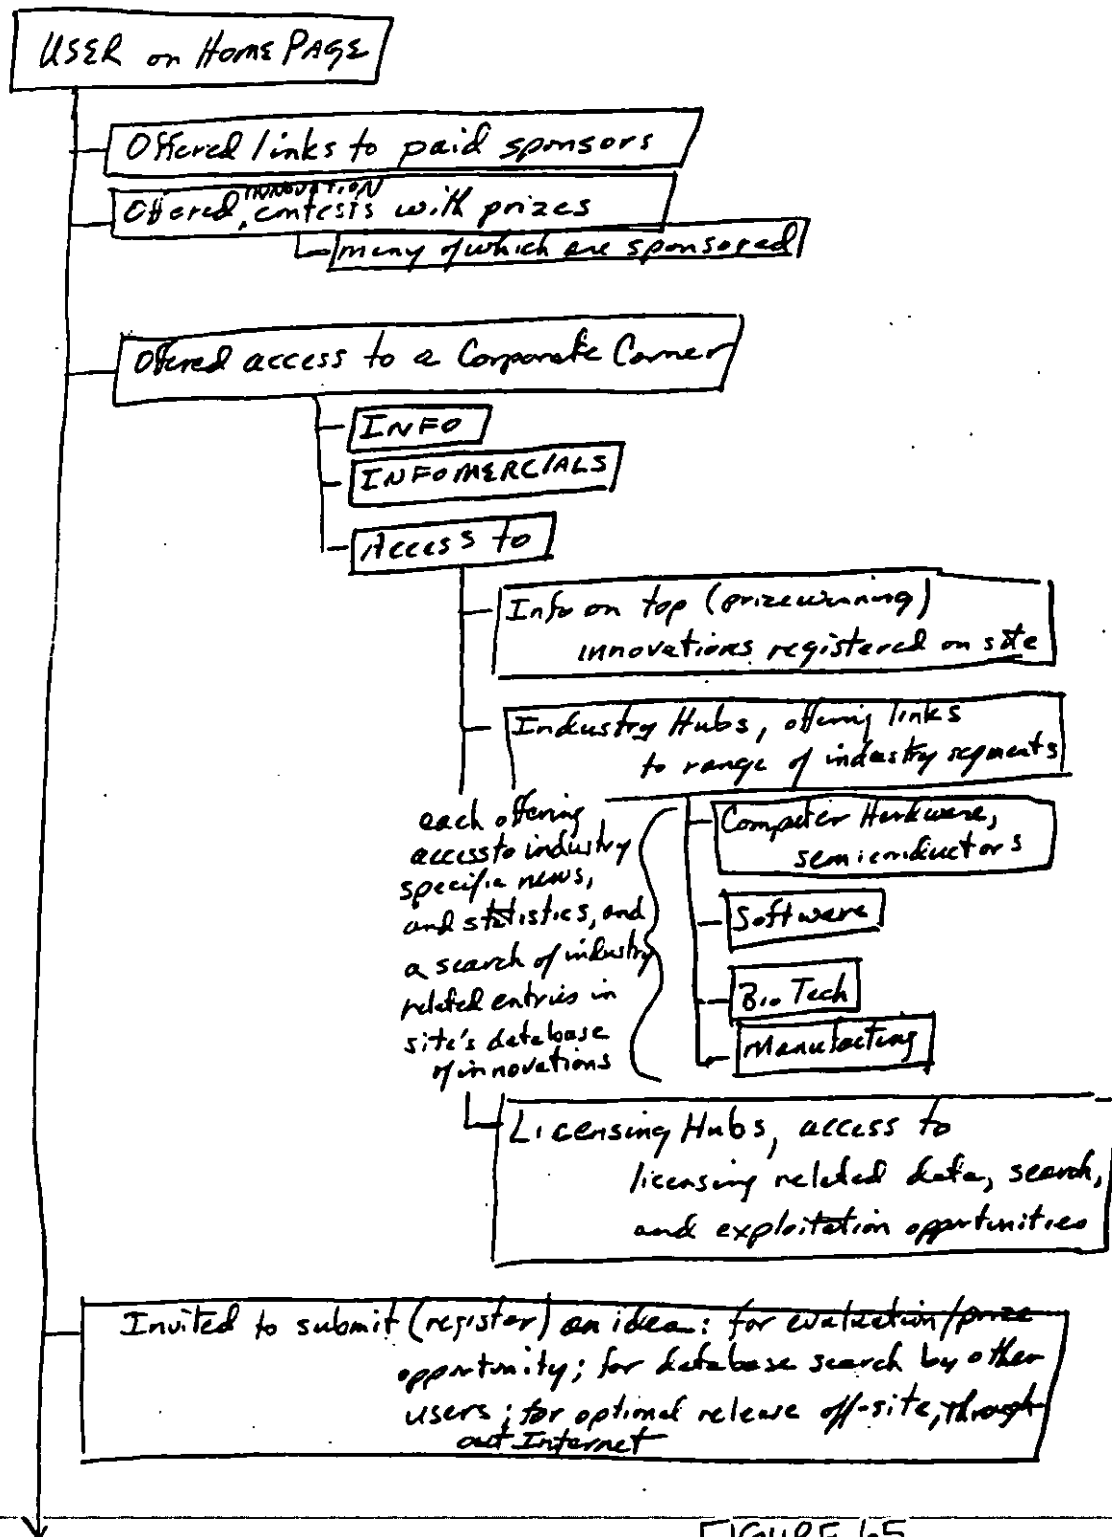 USER on HOME PAGE
Offered links to paid sponsors
INNOVATION
Offered, contests with prizes
many of which are sponsored
Offered access to a Corporate Corner
INFO
INFOMERCIALS
Access to
Info on top (prizewinning)
innovations registered on site
Industry Hubs, offering links
to range of industry segments
each offering
access to industry
specific news,
and statistics, and
a search of industry
related entries in
site's database
of innovations
Computer Hardware,
semiconductors
Software
Bio Tech
Manufacting
Licensing Hubs, access to
licensing related data, search,
and exploitation opportunities
Invited to submit (register) an idea: for evaluation/prize
opportunity; for database search by other
users; for optional release off-site, through-
out Internet
FIGURE 65